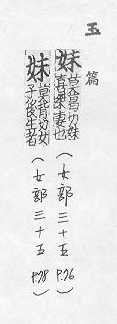 玉篇
妺 莫曷切妺
喜桀妻也 (女部三十五 P.76)
妹 莫背切女
子後生者 (女部三十五 P.78)